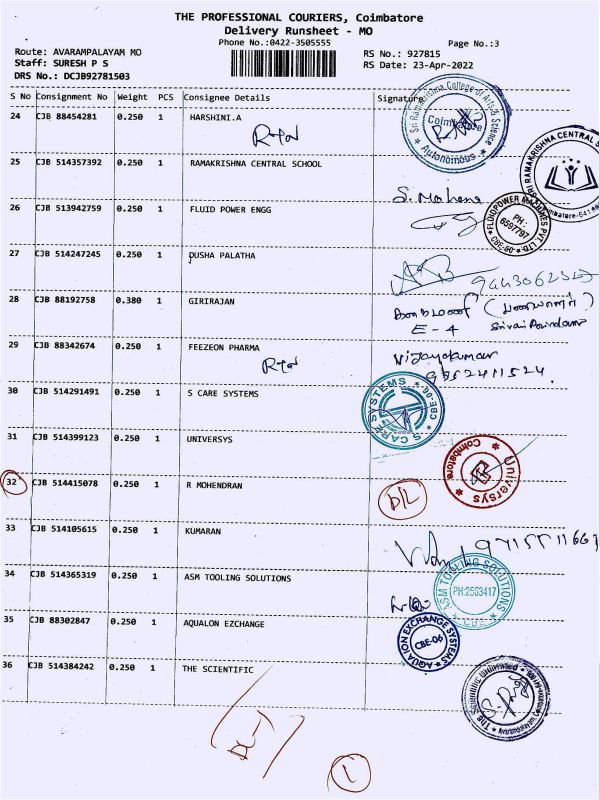 THE PROFESSIONAL COURIERS, Coimbatore
Delivery Runsheet - MO
Phone No.:0422-3505555
Page No.:3
Route: AVARAMPALAYAM MO
RS No.: 927815
Staff: SURESH P S
RS Date: 23-Apr-2022
DRS No.: DCJB92781503
S No Consignment No Weight PCS Consignee Details Signature
24 CJB 88454281 0.250 1 HARSHINI.A
Sri Ramakrishna College of Arts & Science
Coimbatore
Autonomous
25 CJB 514357392 0.250 1 RAMAKRISHNA CENTRAL SCHOOL
SRI RAMAKRISHNA CENTRAL
Coimbatore-641
S. Mohana
26 CJB 513942759 0.250 1 FLUID POWER ENGG
FLUIDPOWER MACHINES PVT. LTD.
PH:
6597797
CBE-
27 CJB 514247245 0.250 1 DUSHA PALATHA
28 CJB 88192758 0.380 1 GIRIRAJAN
E-4
29 CJB 88342674 0.250 1 FEEZEON PHARMA
Vijayakumar
9952411524
30 CJB 514291491 0.250 1 S CARE SYSTEMS
S CARE SYSTEMS
CBE-06
31 CJB 514399123 0.250 1 UNIVERSYS
Universys
Coimbatore
32 CJB 514415078 0.250 1 R MOHENDRAN
D/L
33 CJB 514105615 0.250 1 KUMARAN
34 CJB 514365319 0.250 1 ASM TOOLING SOLUTIONS
ASM TOOLING SOLUTIONS
PH:2503417
CBE
35 CJB 88302847 0.250 1 AQUALON EZCHANGE
AQUATION EXCHANGE SYSTEMS
CBE-06
36 CJB 514384242 0.250 1 THE SCIENTIFIC
The Scientific